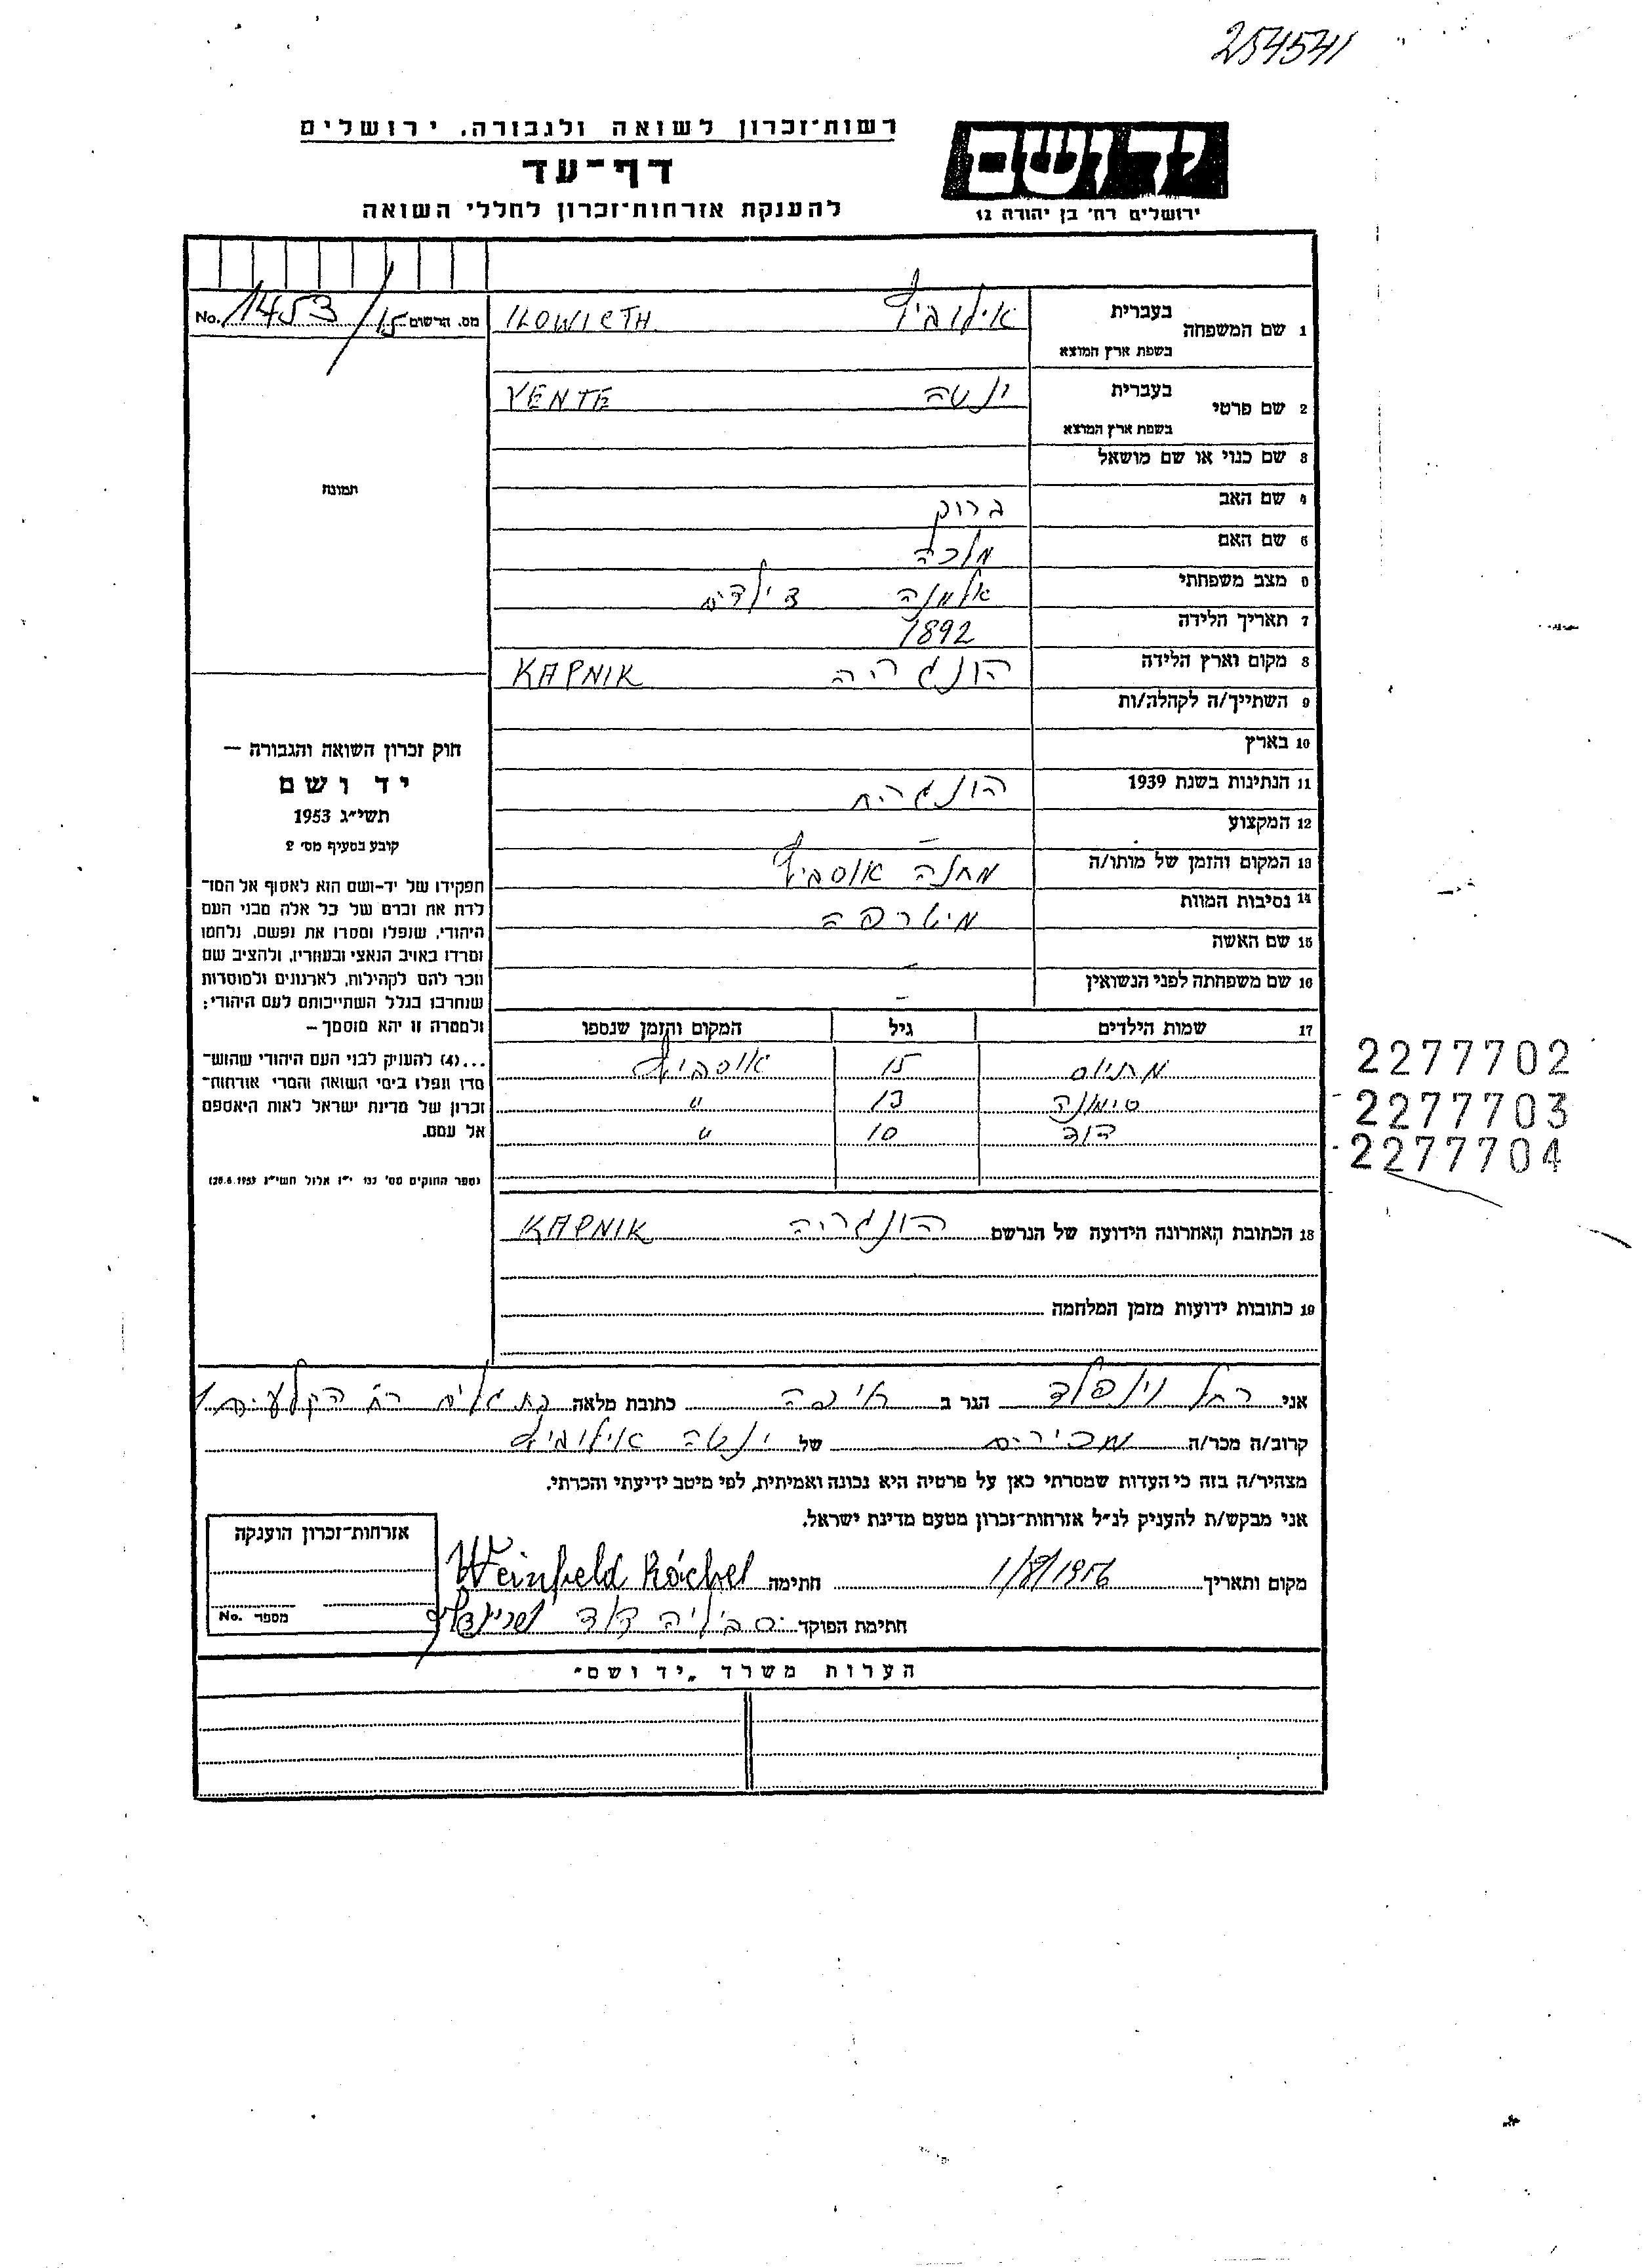 254541
רשות־זכרון לשואה ולגבורה. ירושלים
דף־עד
להענקת אזרחות־זכרון לחללי השואה
יד ושם
ירושלים רח' בן יהודה 12
No. 1453/15 מס. הרשום
1 שם המשפחה בעברית אילוביץ ILOWICTH
בשפת ארץ המוצא
2 שם פרטי בעברית ינטה YENTE
בשפת ארץ המוצא
3 שם כנוי או שם מושאל
4 שם האב ברוך
5 שם האם מלכה
6 מצב משפחתי אלמנה 3 ילדים
7 תאריך הלידה 1892
8 מקום וארץ הלידה הונגריה KAPNIK
9 השתייך/ה לקהלה/ות
10 בארץ
11 הנתינות בשנת 1939 הונגרית
12 המקצוע –
13 המקום והזמן של מותו/ה מחנה אוסביץ
14 נסיבות המוות
15 שם האשה –
16 שם משפחתה לפני הנשואין –
17 שמות הילדים גיל המקום והזמן שנספו
15 אוסביץ
סימונה 13 "
דוד 10 "
2277702
2277703
2277704
18 הכתובת האחרונה הידועה של הנרשם הונגריה KAPNIK
19 כתובות ידועות מזמן המלחמה
תמונה
חוק זכרון השואה והגבורה —
יד ושם
תשי"ג 1953
קובע בסעיף מס' 2
תפקידו של יד-ושם הוא לאסוף אל המו־
לדת את זכרם של כל אלה מבני העם
היהודי, שנפלו ומסרו את נפשם, נלחמו
ומרדו באויב הנאצי ובעוזריו, ולהציב שם
וזכר להם לקהילות, לארגונים ולמוסדות
שנחרבו בגלל השתייכותם לעם היהודי;
ולמטרה זו יהא מוסמך –
...(4) להעניק לבני העם היהודי שהוש־
מדו ונפלו בימי השואה והמרי אזרחות־
זכרון של מדינת ישראל לאות היאספם
אל עמם.
(ספר החוקים מס' 132 י"ז אלול תשי"ג 28.8.1953)
אני רחל וינפלד הגר ב חיפה כתובת מלאה
קרוב/ה מכר/ה מכירים של ינטה אילוביץ
מצהיר/ה בזה כי העדות שמסרתי כאן על פרטיה היא נכונה ואמיתית, לפי מיטב ידיעתי והכרתי.
אני מבקש/ת להעניק לנ"ל אזרחות־זכרון מטעם מדינת ישראל.
מקום ותאריך 1/8/1956 חתימה Weinfeld Ráchel
חתימת הפוקד דוד
אזרחות־זכרון הוענקה
מספר No.
הערות משרד „יד ושם"